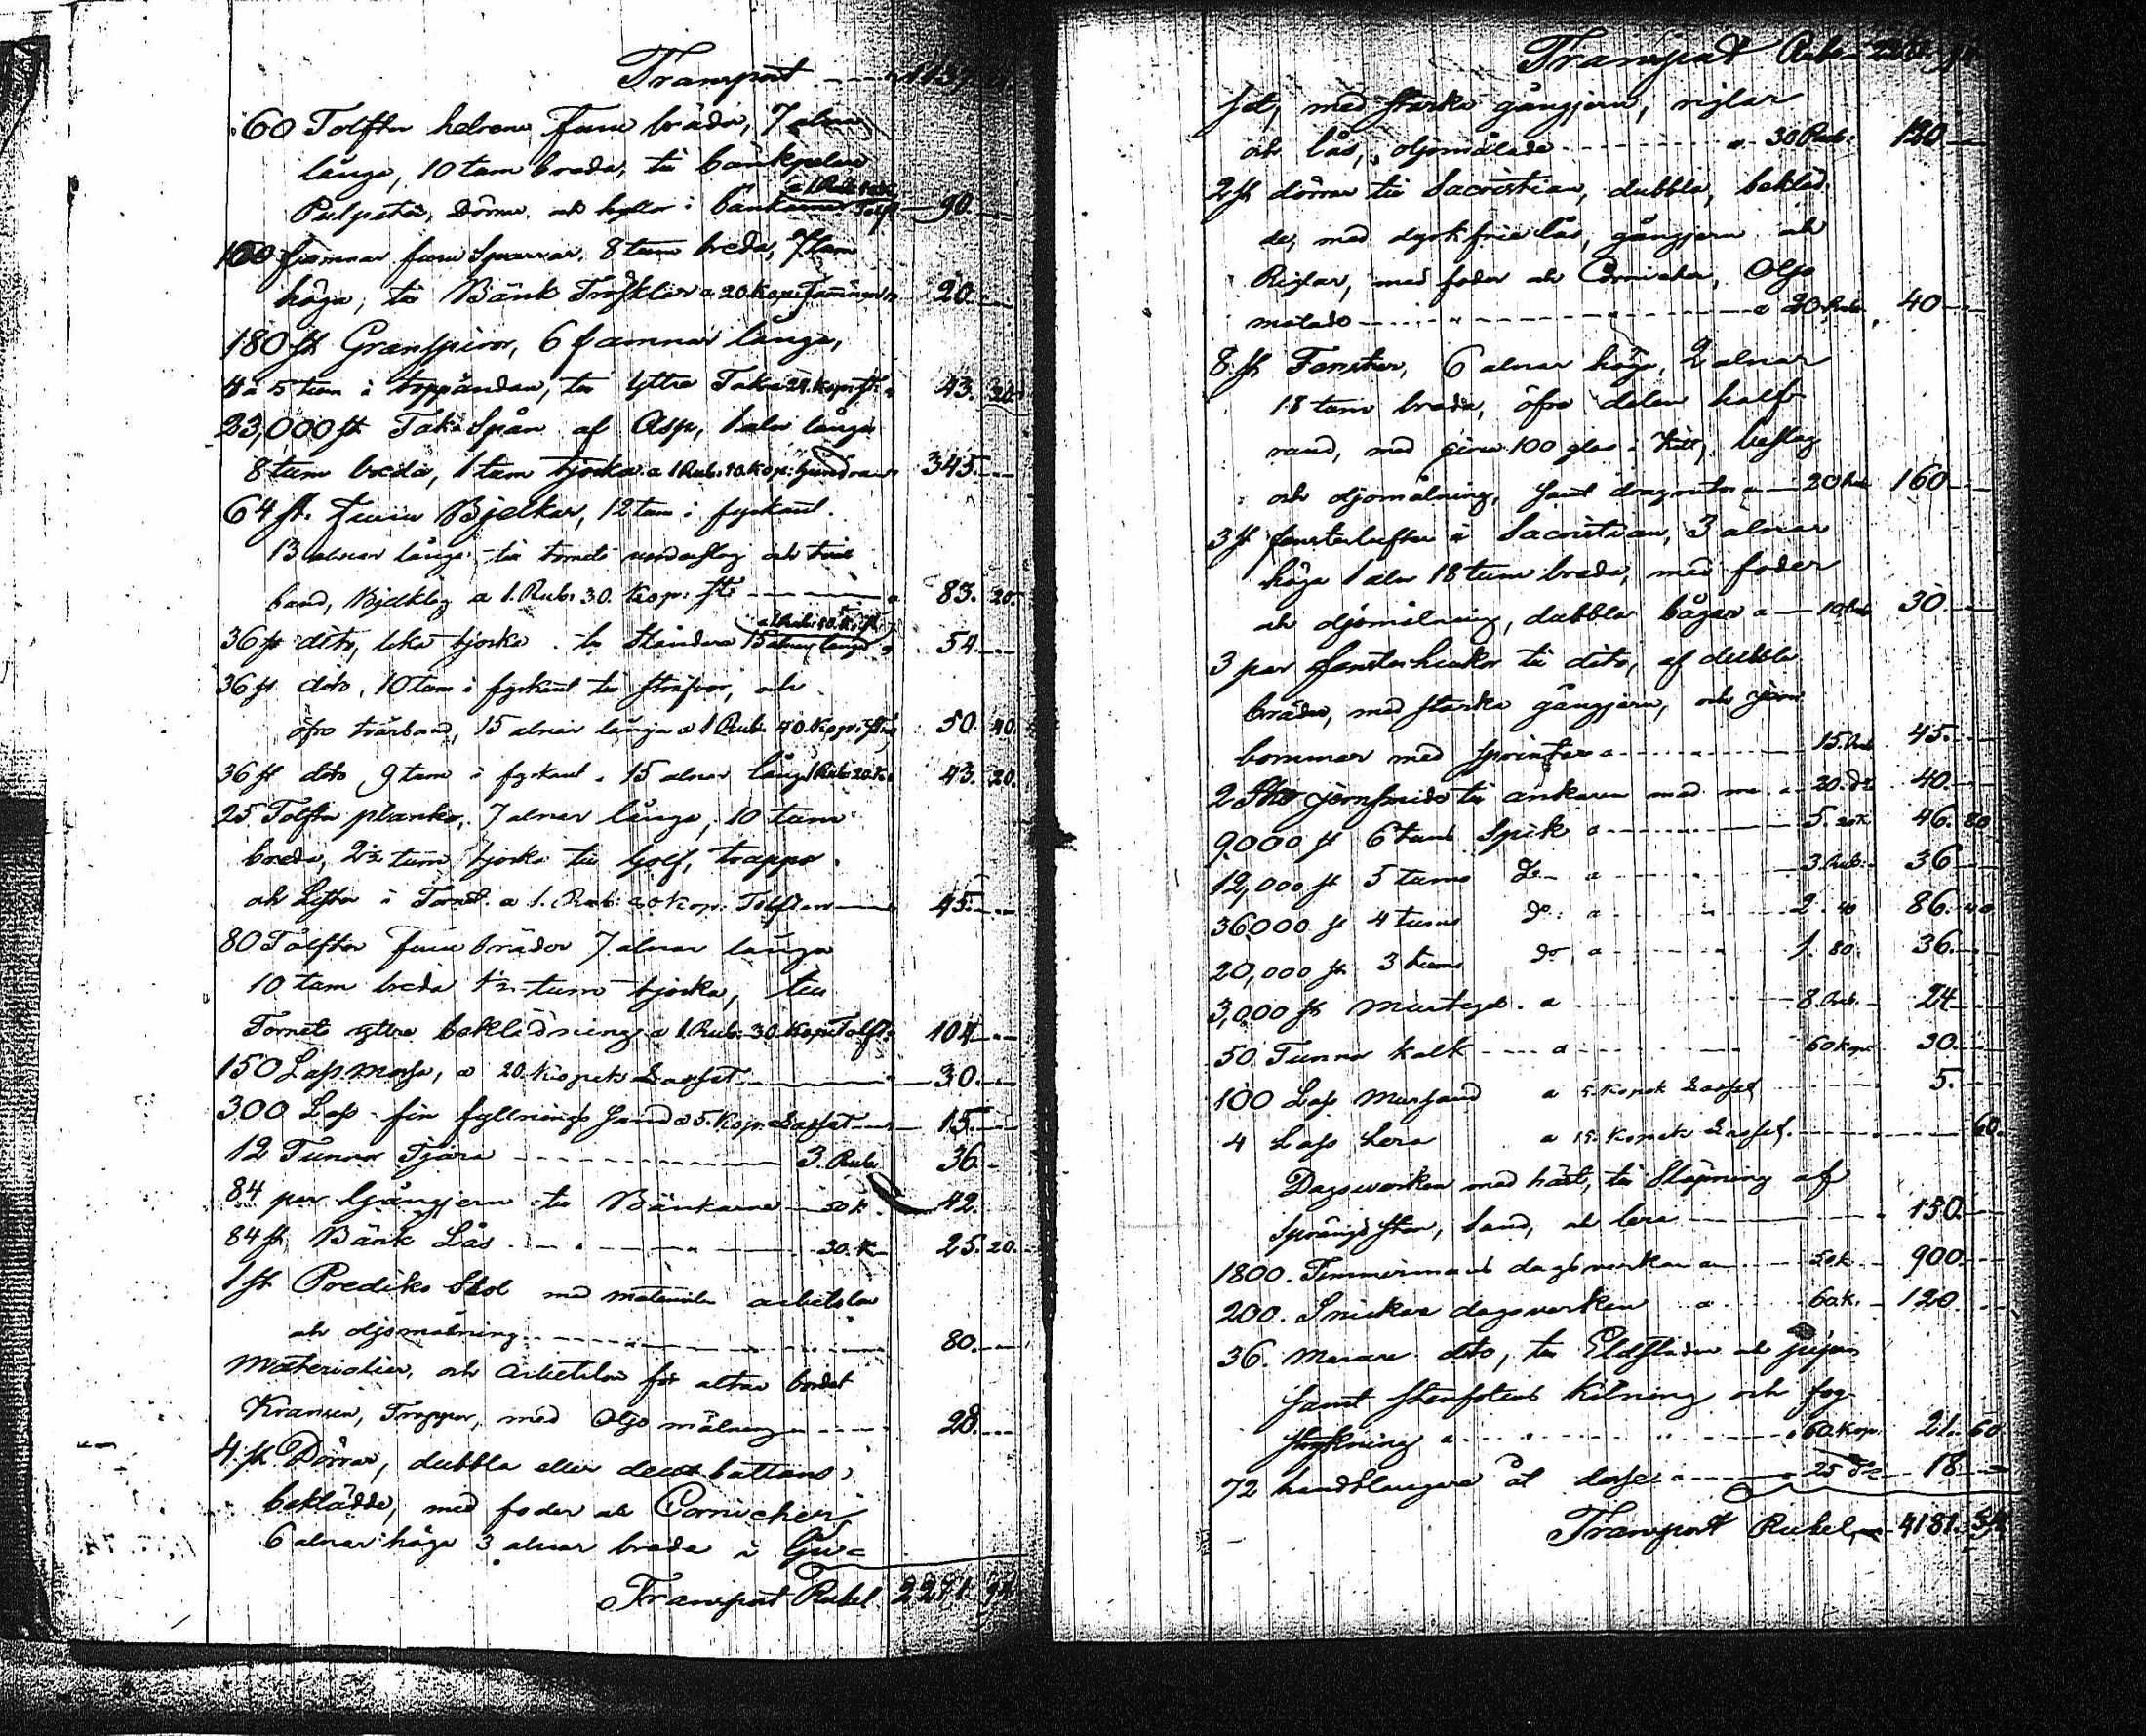 Transport
60 Tolfter helrena furu bräder, 7 alnar
långa, 10 tum breda, till bänkpelare
a 1 Rub. 50 K.
Pulpeter, dörrar och hyllor i bänkarne Tolft 90.
100 famnar furu Sparrar, 8 tum breda, 7 tum
höga, till Bänk Trösklar a 20 Kop. Famnen 20.
180 st Granspiror, 6 famnar långa,
4 a 5 tum i toppändan, till yttre Taket a 24. Kop. st. 43. 20.
23,000 st Tak Spån af Asp, 1 aln långa
8 tum breda, 1 tum tjocka a 1 Rub. 50. Kop. hundra 345.
64 st. furu Bjelkar, 12 tum i fyrkant.
13 alnar långa till tornets underslag och tvär
band, Bjelklag a 1. Rub. 30. Kop. st. 83. 20.
a 1 Rub. 50. K. st.
36 st dito, lika tjocka till Ständare 15 alnar långa 54.
36 st dito, 10 tum i fyrkant till sträfvor, och
öfre tvärband, 15 alnar långa a 1 Rub. 40 Kop. st. 50. 40.
36 st dito, 9 tum i fyrkant. 15 alnar långa 1 Rub. 20. K. 43. 20.
25 Tolfter plankor, 7 alnar långa, 10 tum
breda, 2½ tum tjocka till golf, trappor
och Luckor i Tornet a 1. Rub. 80 Kop. Tolften 45.
80 Tolfter furu bräder 7 alnar långa
10 tum breda 1½ tum tjocka, till
Tornets yttre beklädning a 1 Rub. 30 Kop. Tolft. 104.
150 Lass Mossa, a 20. Kopek Lasset 30.
300 Lass fin fyllnings sand a 5. Kop. Lasset 15.
12 Tunnor Tjära 3. Rub. 36.
84 par Gångjern till Bänkarne 50 K. 42.
84 st Bänk Lås 30. K. 25. 20.
1 st Prediko Stol med materialier arbetslön
och oljemålning 80.
Materialier, och arbetslön för altar bordet
Kransen, Trappor, med Olje målning 28.
4. st Dörrar, dubbla eller deux battans
beklädde, med foder och Cornicher
6 alnar höga 3 alnar breda i Lju=
Transport Rubel 2271. 94
Transport Rub. 2271. 94
set, med starka gångjern, riglar
och lås, oljemålade a 30 Rub. 120
2 st dörrar till Sacristian, dubbla, bekläd
de, med dyrkfria lås, gångjern och
Riglar, med foder och Cornicher, Olje
målade a 20 Rub. 40
8 st Fönster, 6 alnar höga, 2 alnar
18 tum breda, öfre delen half
rund, med sina 100 glas i Kitt, beslag
och oljemålning, samt dragrutor a 20 Rub. 160
3 st fönsterlufter i Sacristian, 3 alnar
höga 1 aln 18 tum breda, med foder
och oljemålning, dubbla bågar a 10 Rub. 30.
3 par fönsterluckor till dito, af dubbla
bräder, med starka gångjern, och jern
bommar med sprintar a 15. Rub. 45.
2 jernsmide till ankaren med m. a 20. do 40.
9,000 st 6 tums Spik a 5. 20 K. 46. 80
12,000 st 5 tums do a 3 Rub. 36
36,000 st 4 tums do a 2. 40 86. 40
20,000 st 3 tums do a 1. 80. 36.
3,000 st Murtegel a 8. Rub. 24
50 Tunnor kalk a 60 Kop. 30.
100 Lass Mursand a 5. Kopek Lasset 5.
4 Lass Lera a 15. Kopek Lasset 60.
Dagsverken med häst, till Släpning af
Sprängd sten, sand, och lera 150.
1800. Timmermans dagsverken a 50 K. 900.
200. Snickare dagsverken a 60 K. 120
36. Murare dito, till Eldstäder och pipor
samt stenfotens kilning och fog
strykning a 60. Kop. 21. 60
72 handtlangare åt desse a 25 do 18
Transport Rubel 4181. 34